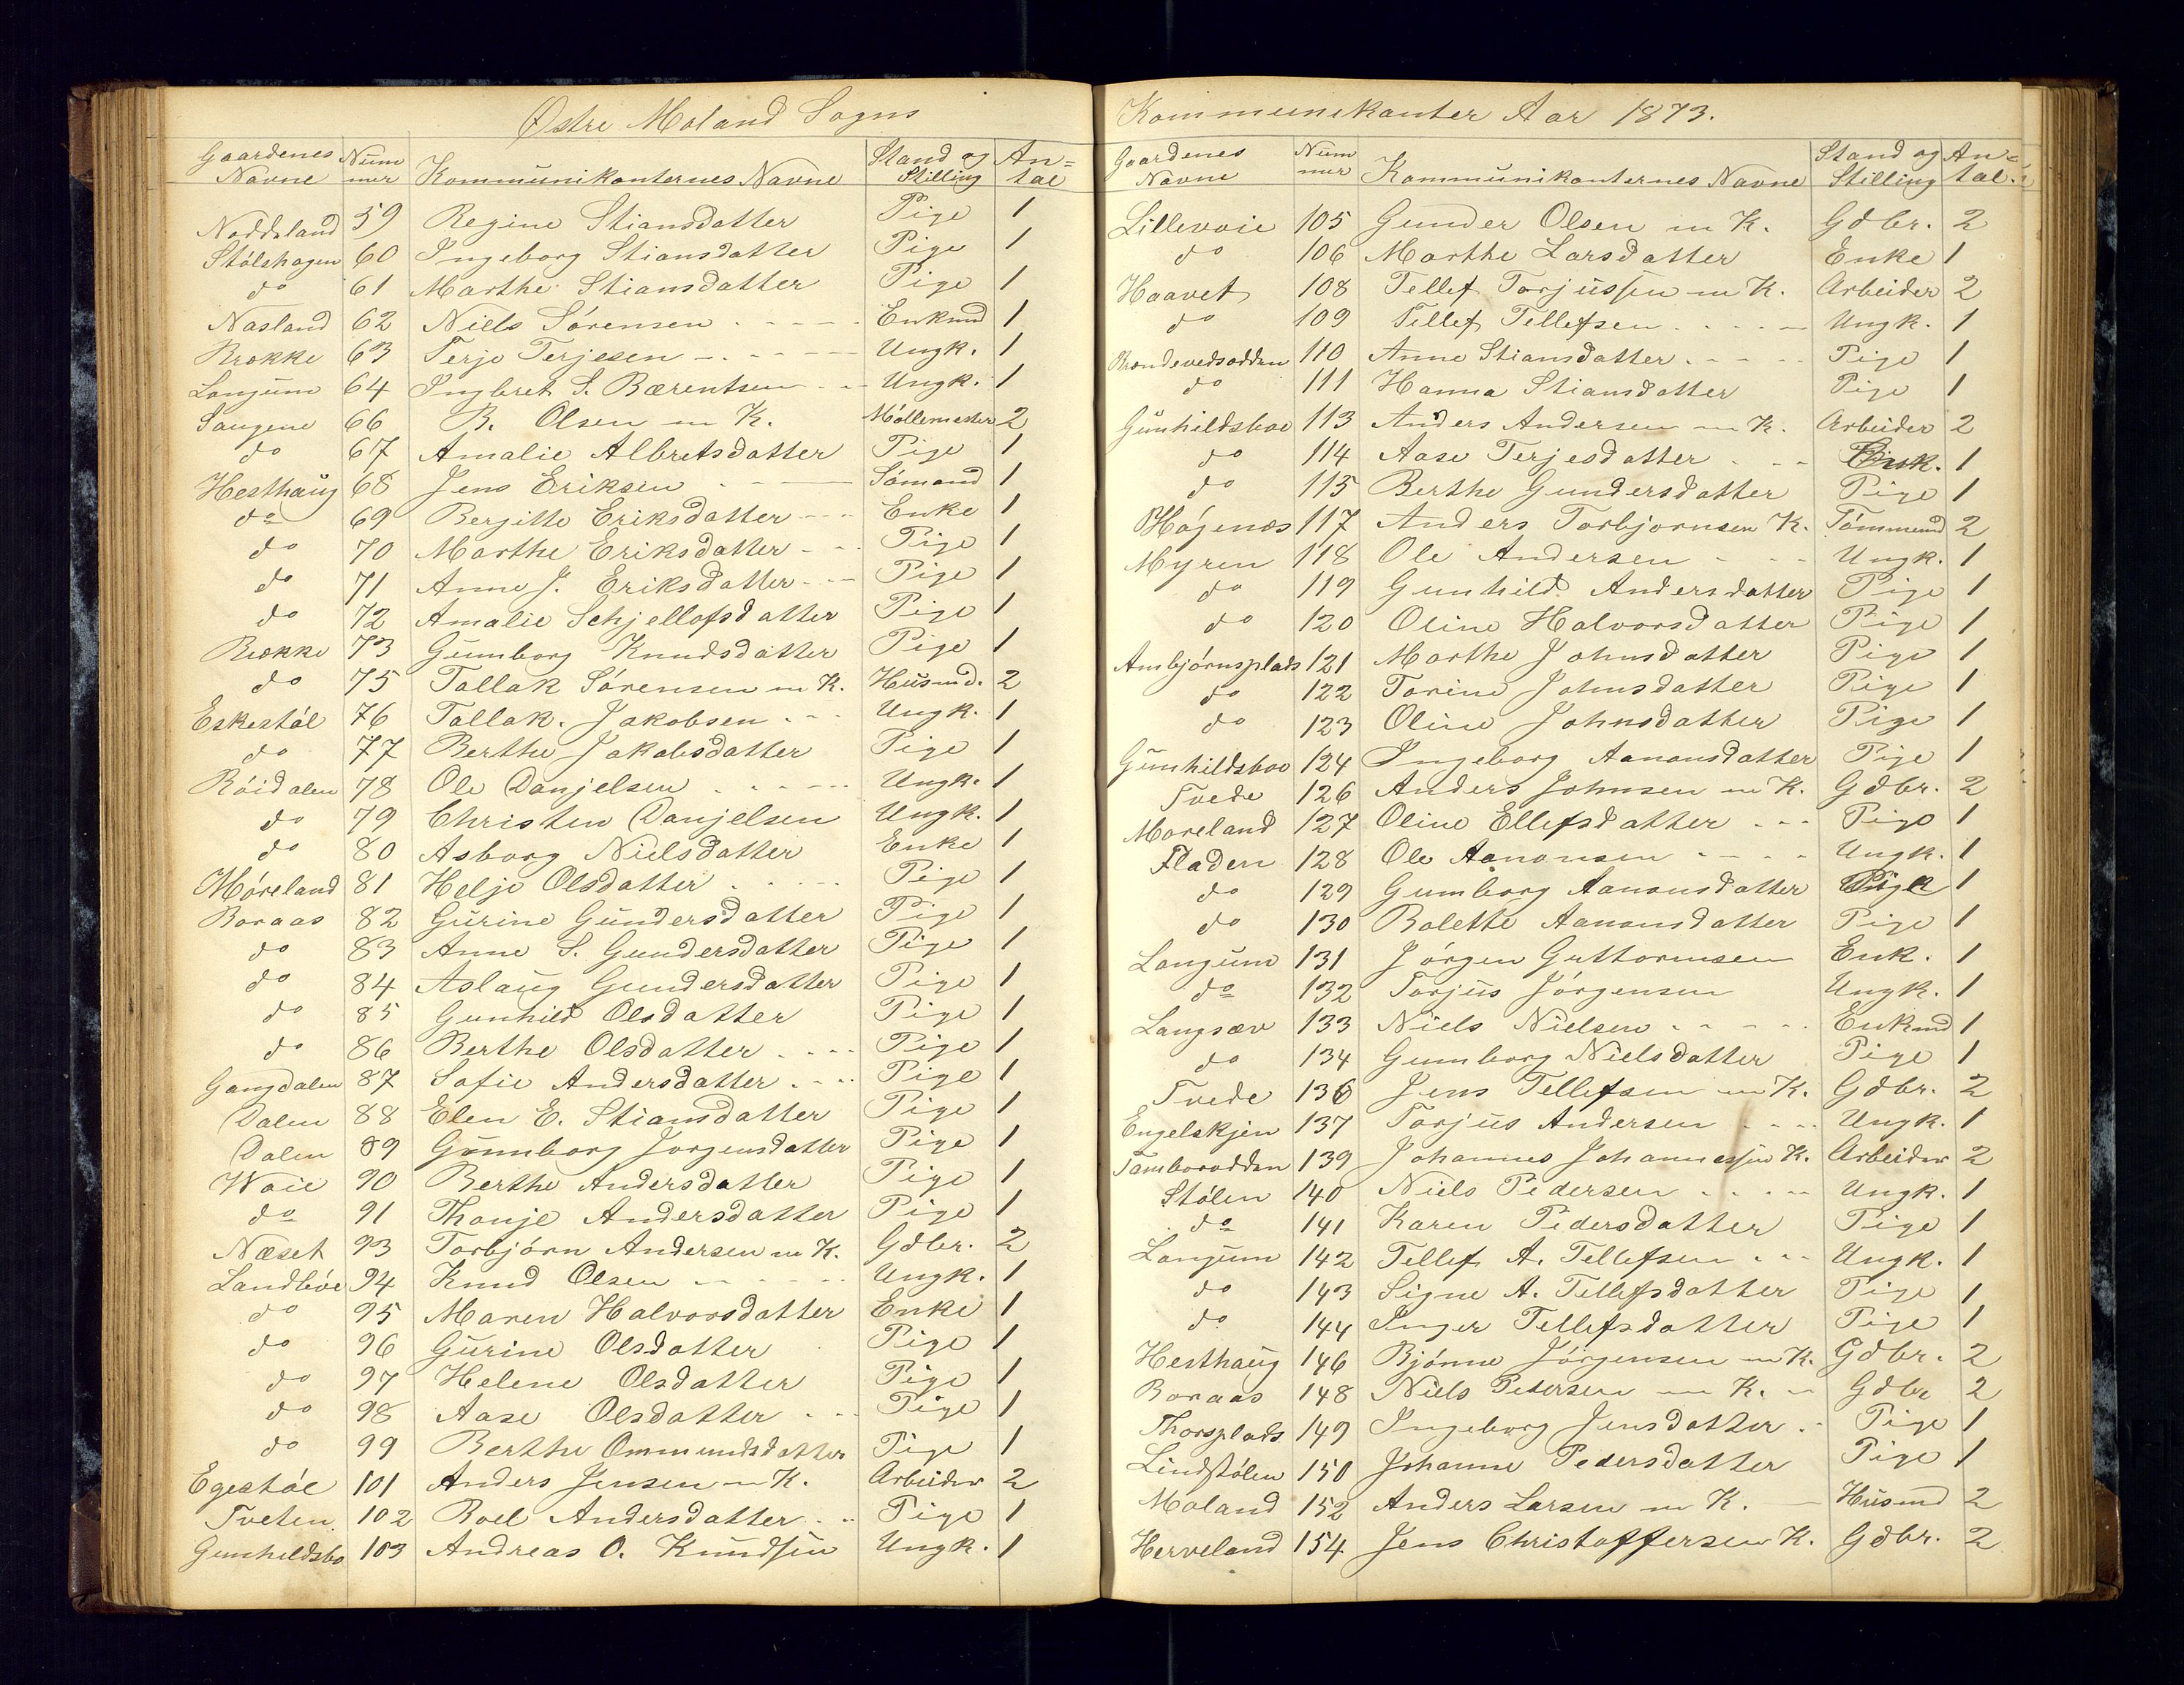 Østre Moland Sogns
Gaardenes Navne Num mer Kommunikanternes Navne Stand og Stilling An= tal
Noddeland 59 Regine Stiansdatter Pige 1
Stølshagen 60 Ingeborg Stiansdatter Pige 1
do 61 Marthe Stiansdatter Pige 1
Nasland 62 Niels Sørensen Enkmd 1
Brække 63 Terje Terjesen Ungk. 1
Langum 64 Ingbret S. Bærentsen Ungk. 1
Saugene 66 B. Olsen m K. Møllemester 2
do 67 Amalie Albretsdatter Pige 1
Hesthaug 68 Jens Eriksen Sømand 1
do 69 Bergitte Eriksdatter Enke 1
do 70 Marthe Eriksdatter Pige 1
do 71 Anne J. Eriksdatter Pige 1
do 72 Amalie Schjellofsdatter Pige 1
Brække 73 Gumborg Knudsdatter Pige 1
do 75 Tallak Sørensen m K. Husmd. 2
Eskestøl 76 Tallak. Jakobsen Ungk. 1
do 77 Berthe Jakobsdatter Pige 1
Røidalen 78 Ole Danjelsen Ungk. 1
do 79 Christen Danjelsen Ungk. 1
do 80 Asborg Nielsdatter Enke 1
Møreland 81 Helje Olsdatter Pige 1
Boraas 82 Gurine Gundersdatter Pige 1
do 83 Anne S. Gundersdatter Pige 1
do 84 Aslaug Gundersdatter Pige 1
do 85 Gunhild Olsdatter Pige 1
do 86 Berthe Olsdatter Pige 1
Gangdalen 87 Sofie Andersdatter Pige 1
Dalen 88 Elen E. Stiansdatter Pige 1
Dalen 89 Gunnborg Jorgensdatter Pige 1
Waie 90 Berthe Andersdatter Pige 1
do 91 Thonje Andersdatter Pige 1
Næset 93 Torbjørn Andersen m K. Gdbr. 2
Landbøe 94 Knud Olsen Ungk. 1
do 95 Maren Halvorsdatter Enke 1
do 96 Gurine Olsdatter Pige 1
do 97 Helene Olsdatter Pige 1
do 98 Aase Olsdatter Pige 1
do 99 Berthe Ommundsdatter Pige 1
Egestøl 101 Anders Jensen m K. Arbeider 2
Tveten 102 Boel Andersdatter Pige 1
Gunhildsbo 103 Andreas O. Knudsen Ungk. 1
Kommunekanter Aar 1873.
Gaardenes Navne Num mer Kommunikanternes Navne Stand og Stilling An= tal.
Lillevaie 105 Gunder Olsen m K. Gdbr. 2
do 106 Marthe Larsdatter Enke 1
Haavet 108 Tellef Torjussen m K. Arbeider 2
do 109 Tellef Tellefsen Ungk. 1
Brændevedsodden 110 Anne Stiansdatter Pige 1
do 111 Hanna Stiansdatter Pige 1
Gunhildsboe 113 Anders Andersen m K. Arbeider 2
do 114 Aase Terjesdatter 1
do 115 Berthe Gundersdatter Pige 1
Høgenæs 117 Anders Torbjornsen K. Tømmermd 2
Myren 118 Ole Andersen Ungk. 1
do 119 Gunhild Andersdatter Pige 1
do 120 Oline Halvorsdatter Pige 1
Ambjørnsplads 121 Marthe Johnsdatter Pige 1
do 122 Torine Johnsdatter Pige 1
do 123 Oline Johnsdatter Pige 1
Gunhildsboe 124 Ingeborg Aanonsdatter Pige 1
Tvede 126 Anders Johnsen m K. Gdbr. 2
Moreland 127 Oline Ellefsdatter Pige 1
Fladen 128 Ole Aanonsen Ungk. 1
do 129 Gumborg Aanonsdatter Pige 1
do 130 Bolette Aanonsdatter Pige 1
Langum 131 Jørgen Guttormsen Enk. 1
do 132 Torjus Jørgensen Ungk. 1
Langsæv 133 Niels Nielsen Enkmd 1
do 134 Gumborg Nielsdatter Pige 1
Tvede 136 Jens Tellefsen m K. Gdbr. 2
Engelskjen 137 Torjus Andersen Ungk. 1
Tamborodden 139 Johannes Johannessen K. Arbeider 2
Stølen 140 Niels Pedersen Ungk. 1
do 141 Karen Pedersdatter Pige 1
Langum 142 Tellef A. Tellefsen Ungk. 1
do 143 Signe A. Tellefsdatter Pige 1
do 144 Inger Tellefsdatter Pige 1
Hesthaug 146 Bjønne Jørgensen m K. Gdbr. 2
Boraas 148 Niels Pedersen m K. Gdbr 2
Thorsplads 149 Ingeborg Jensdatter Pige 1
Lindstølen 150 Johanne Pedersdatter Pige 1
Moland 152 Anders Larsen m K. Husmd 2
Herveland 154 Jens Christoffersen K. Gdbr. 2